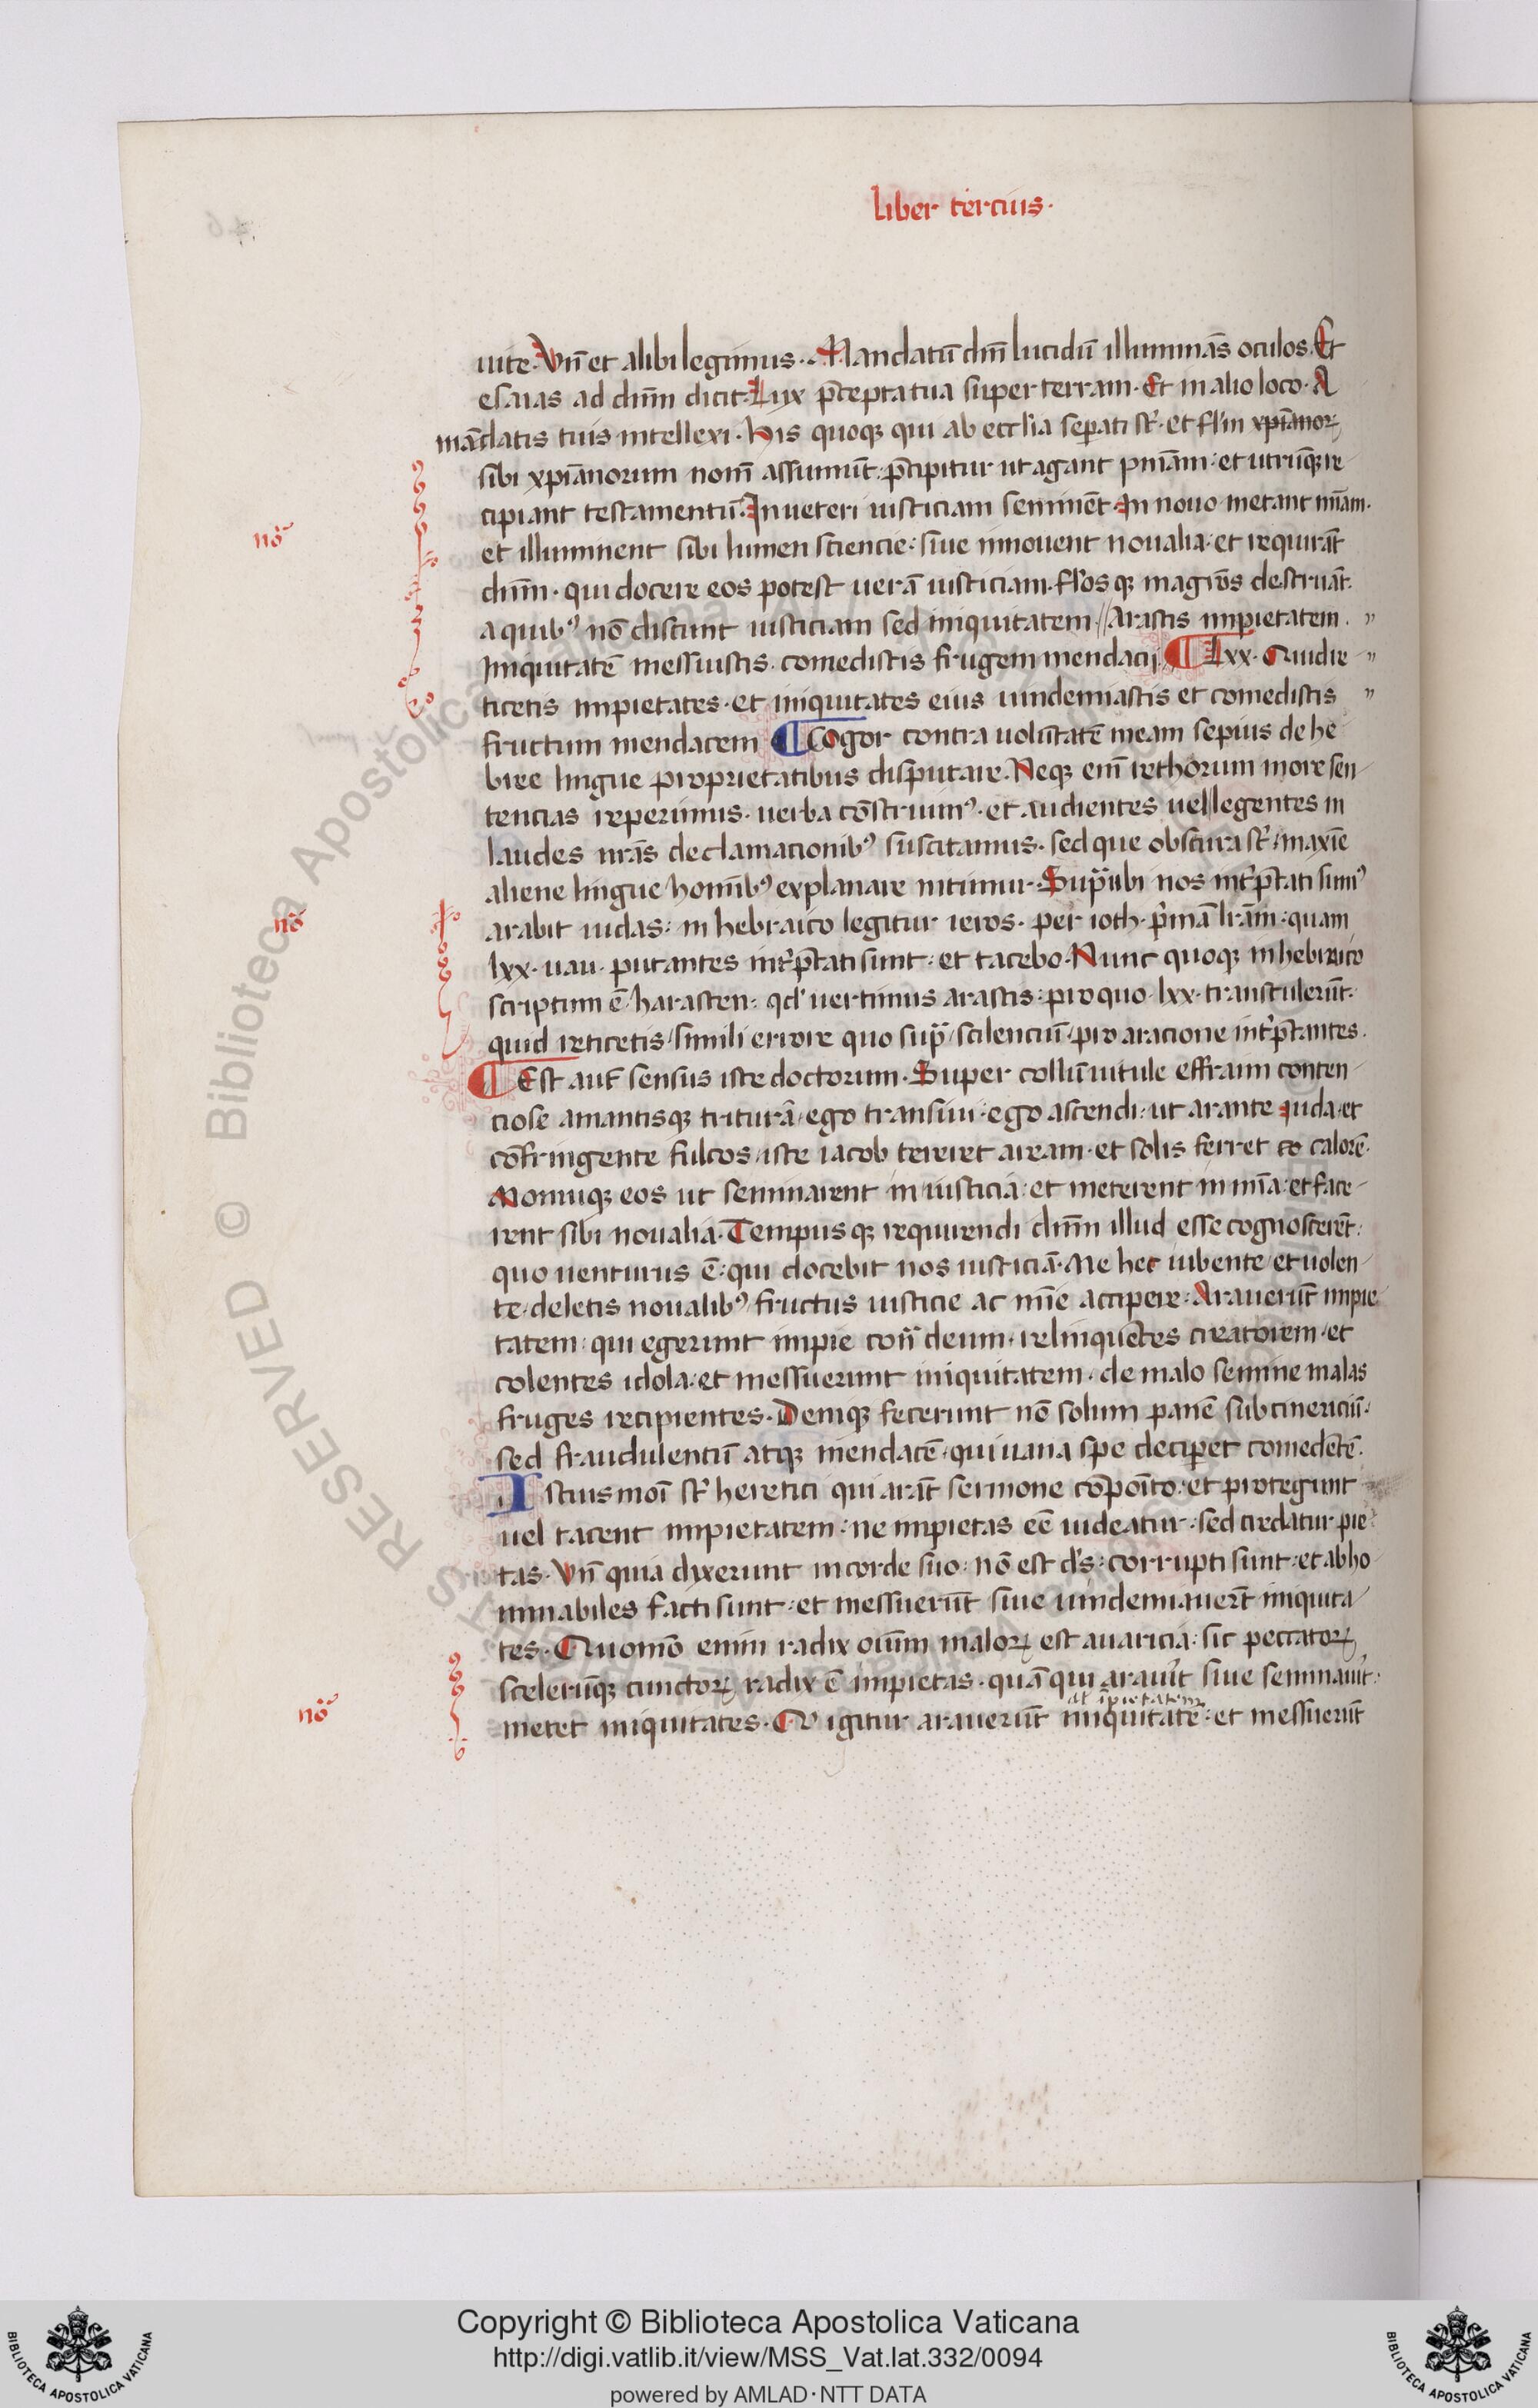 liber tercius.
uite. Vn̄ et alibi legimus. Mandatū dn̄i lucidū illuminās oculos. Et
esaias ad dn̄m dicit. Lux p̄cepta tua super terram. Et in alio loco. A
mādatis tuis intellexi. His quoqꝫ qui ab ecclīa sep̄ati st̄. et fl̄m xp̄ianoꝝ
sibi xp̄ianorum nom̄ assumūt. p̄cipitur ut agant pn̄iam. et utrūqꝫ re
cipiant testamentū. In ueteri iusticiam seminēt. In nouo metant mīam.
et illuminent sibi lumen sciencie. siue innouent noualia. et requirāt
dn̄m. qui docere eos potest uerā iusticiam. fl̄osqꝫ magr̄os destruāt.
a quibꝰ nō discunt iusticiam sed iniquitatem. // Arastis impietatem. "
Iniquitatē messuistis. comedistis frugem mendacij. ¶ Lxx. Quid re "
ticetis impietates. et iniquitates eius uindemiastis et comedistis "
fructum mendacem ¶ Cogor contra uolūtatē meam sepius de he
bree lingue proprietatibus disputare. Neqꝫ enī rethorum more sen
tencias reperimus. uerba cōstruimꝰ. et audientes uel legentes in
laudes nrās declamacionibꝰ suscitamus. sed que obscura st̄. maxīe
aliene lingue homībꝰ explanare nitimur. Supͣ ubi nos int̄p̄tati sumꝰ
arabit iudas: in hebraico legitur ieros. per ioth. pͥmā lrām: quam
lxx. uau. putantes int̄p̄tati sunt: et tacebo. Nunc quoqꝫ in hebraico
scriptum ē harasten: qd' uertimus arastis: pro quo lxx. transtulerūt.
quid reticetis simili errore quo supͣ scilenciū pro aracione int̄p̄tantes.
¶ Est aut̄ sensus iste doctorum. Super collū uitule effraim conten
ciose amantisqꝫ triturā ego transiui: ego ascendi: ut arante iuda et
cōfringente sulcos iste iacob tereret aream. et solis ferret eo calorē.
Monuiqꝫ eos ut seminarent in iusticia: et meterent in mīa: et face
rent sibi noualia. Tempusqꝫ requirendi dn̄m illud esse cognoscerēt:
quo uenturus ē: qui docebit nos iusticiā. Me hec iubente et uolen
te deletis noualibꝰ fructus iusticie ac mīe accipere. Arauerūt impie
tatem: qui egerunt impie cont̄ deum. relinquētes creatorem et
colentes idola. et messuerunt iniquitatem. de malo semine malas
fruges recipientes. Deniqꝫ fecerunt nō solum panē subcinericiū.
sed fraudulentū atqꝫ mendacē. qui uana spe deciperet comedētē.
Istiusmoī st̄ heretici qui arāt sermone cōpoīto. et protegunt
uel tacent impietatem: ne impietas eē uideatur. sed credatur pie
tas. Vn̄ quia dixerunt in corde suo: nō est ds̄: corrupti sunt: et abho
minabiles facti sunt: et messuerūt siue uindemiauerūt iniquita
tes. Quomō enim radix oīum maloꝝ est auaricia: sic peccatoꝝ
scelerūqꝫ cunctoꝝ radix ē impietas. quā qui arauīt siue seminauīt:
al' īpietatem
metet iniquitates. Qui igitur arauerūt iniquitatē: et messuerūt
nō
nō
nō